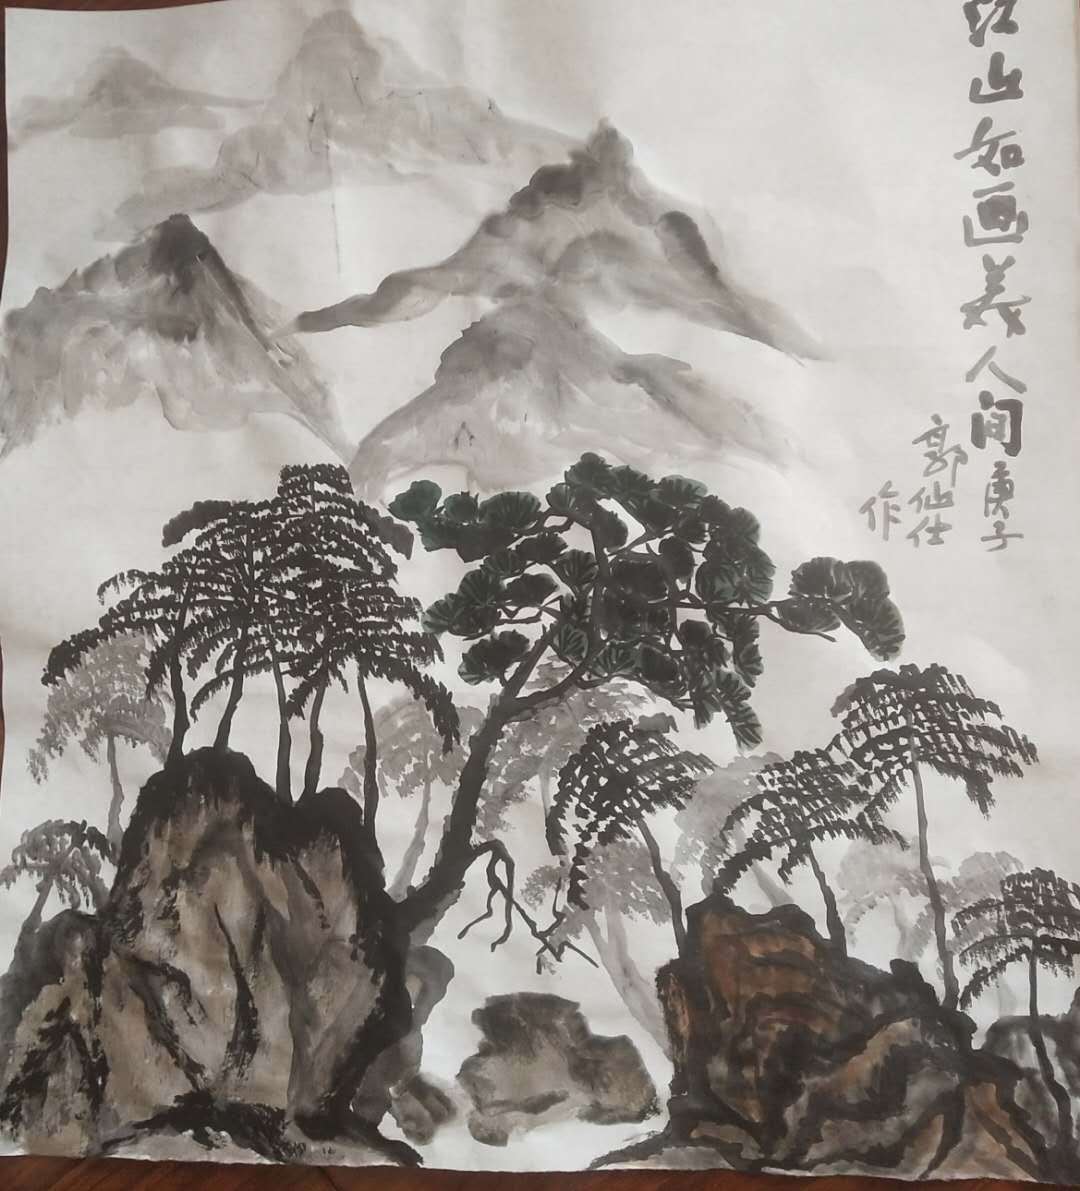 江山如画美人间庚子
郭仙仕
作